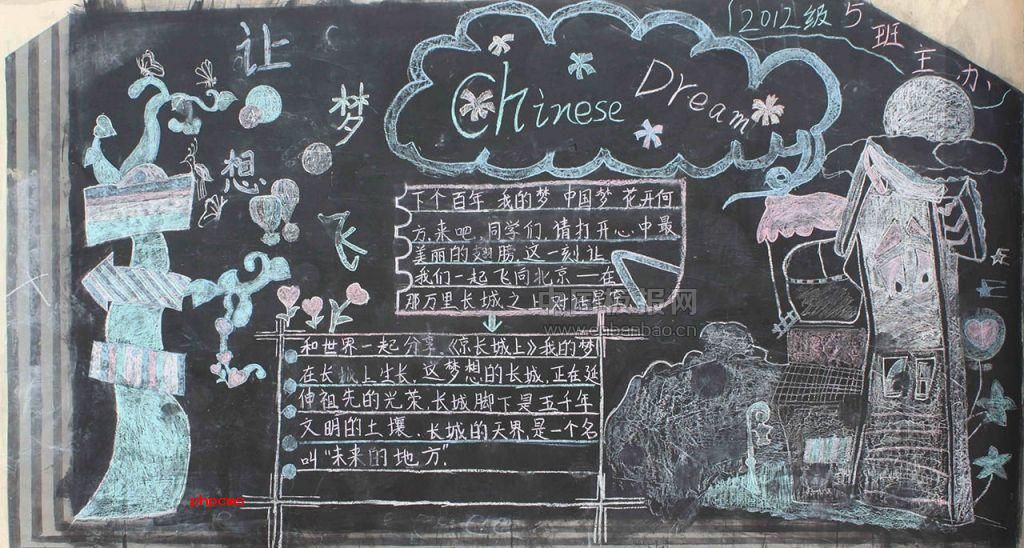 2012级5班主办
让梦想飞
Chinese Dream
下个百年 我的梦 中国梦 花开何
方 来吧 同学们 请打开心中最
美丽的翅膀 这一刻 让
我们一起飞向北京——在
那万里长城之上 对往
中国板报网
www.chbanbao.cn
和世界一起分享《京长城上》我的梦
在长城上生长 这梦想的长城 正在延
伸祖先的光荣 长城脚下是五千年
文明的土壤、长城的天界是一个名
叫“未来的地方”
phpcms